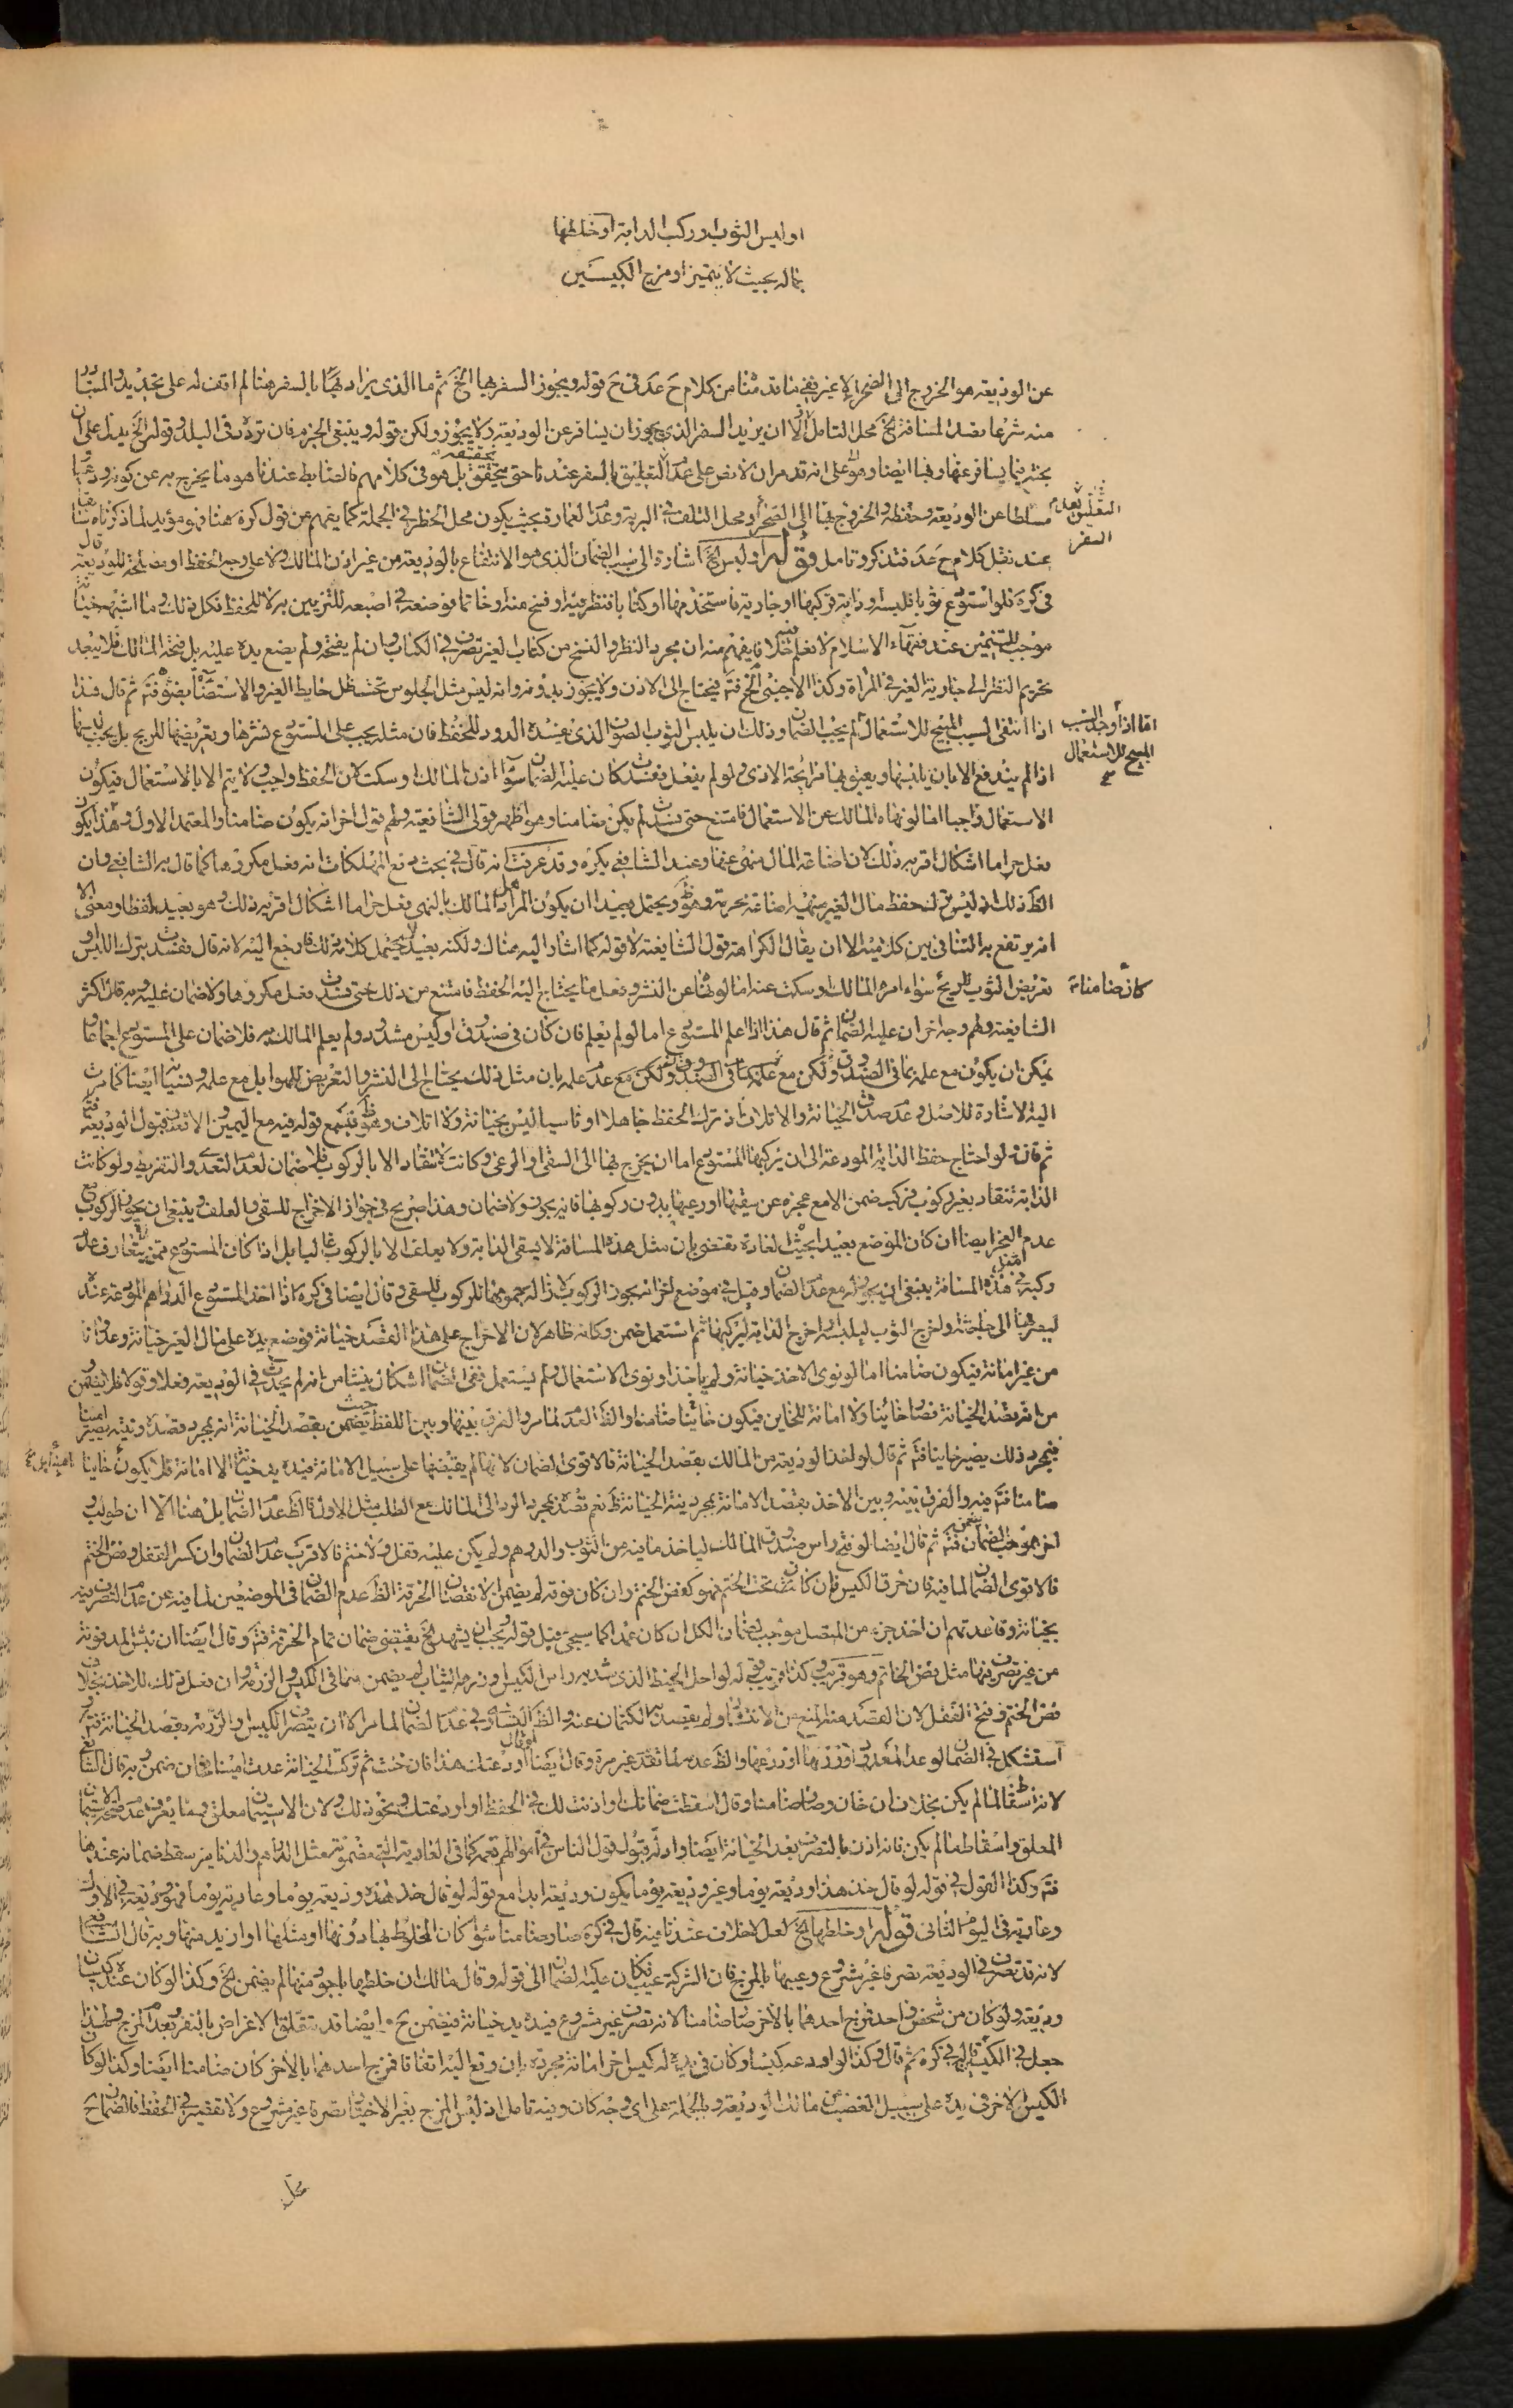 او لبس الثوب او ركب الدابة او خلطها
بماله بحيث لا يتميز او مزج الكيسين
عن الوديعة هو الخروج الى الصحراء لا غير نفى ما قدمنا من كلام ح عد فى ح قوله ويجوز السفر بها الخ ثم ما الذى يزاد بالسفر هنا لم اقف له على تحديد
منه شرعا قصد المسافة الخ محل التامل الا ان يريد السفر الذى يجوز ان يسافر عن الوديعة ولا يجوز ولكن قوله وينبغى الجزم فان تردد فى البلد وقوله الخ يدل على ان
بحثه فيما يسافر عنها وبها ايضا وهو على انه قد مر ان لا نص على عدم التعليق بالسفر عندنا حتى يتحقق بل هو فى كلامهم فالضابط عندنا هو ما يخرج به عن كونه
مسلطا عن الوديعة وحفظه والخروج بها الى الصحراء ومحل التلف فى البرية وعدم العمارة بحيث يكون محل الخطر فى الجملة كما يفهم من قول كره هنا فهو مؤيد لما ذكرناه
عند نقل كلام ح عد فتذكر وتامل قوله او لبس الخ اشارة الى سبب الضمان الذى هو الانتفاع بالوديعة من غير اذن المالك ولا على وجه الحفظ او مصلحة للوديعة قال
فى كره فلو استودع ثوبا فلبسه او دابة فركبها او جارية فاستخدمها او كتابا فنظر فيه او نسخ منه او خاتما فوضعه فى اصبعه للتزيين به لا للحفظ فكل ذلك وما اشبهه خيانة
موجب للتضمين عند فقهاء الاسلام لا نعلم فيه خلافا يفهم منه ان مجرد النظر والنسخ من كتاب الغير تصرف فى الكتاب وان لم يفتحه ولم يضع يده عليه بل فتحه المالك فلا يبعد
تحريم النظر الى جارية الغير فى المرأة وكذا الاجنبى الخ فتم فيحتاج الى الاذن ولا يجوز بدونه وانه ليس مثل الجلوس تحت ظل حايط الغير والاستضائة بضوئه فتم ثم قال هذا
اذا انتفى السبب المبيح للاستعمال لم يجب الضمان وذلك ان يلبس الثوب الصوف الذى يفسده الدود للحفظ فان مثله يجب على المستودع نشرها وتعريضها للريح بل يجب
اذا لم يندفع الا بان يلبسها ويعبق بها رائحة الادمى ولو لم يفعل ففسدت كان عليه الضمان سواء اذن المالك او سكت لان الحفظ واجب ولا يتم الا بالاستعمال فيكون
الاستعمال واجبا اما لو نهاه المالك عن الاستعمال فامتنع حتى فسدت لم يكن ضامنا وهو اظهر قولى الشافعية ولهم قول اخر انه يكون ضامنا والمعتمد الاول وهل يكون
فعل حراما اشكال اقربه ذلك لان اضاعة المال منهى عنها وعند الشافعى يكره وقد عرفت انه قال فى بحث دفع المهلكات انه فعل مكروها كما قال به الشافعى وان
الظ ذلك اذ ليس حفظ مال الغير بنهيه اضاعة محرمة وهو ظ ويحتمل بعيدا ان يكون المراد هل المالك بالنهى فعل حراما اشكال اقربه ذلك وهو بعيد لفظا ومعنى الا
انه يرتفع به التنافى بين كلاميه الا ان يقال الكراهة قول الشافعية لا قوله كما اشار اليه هناك ولكنه بعيد لا يحتمل كلامه ذلك فارجع اليه لانه قال ففسدت بترك اللبس او
تعريض الثوب للريح سواء امره المالك او سكت عنه اما لو نهاه عن النشر وفعل ما يحتاج اليه الحفظ فامتنع من ذلك حتى فسدت فعل مكروها ولا ضمان عليه وبه قال اكثر
الشافعية ولهم وجه اخر ان عليه الضمان ثم قال هذا اذا علم المستودع اما لو لم يعلم فان كان فى صندوق او كيس مشدود ولم يعلم المالك به فلا ضمان على المستودع اجماعا
يمكن ان يكون مع علمه بما فى الصندوق ولكن مع عدم علمه بان مثل ذلك يحتاج الى النشر والتعريض للهوا بل مع علمه ونسيانه ايضا كما مرت
اليه الاشارة للاصل وعدم صدق الخيانة والاتلاف اذ ترك الحفظ جاهلا او ناسيا ليس بخيانة ولا اتلاف وهو ظ فيسمع قوله فيه مع اليمين لقبول الوديعة فتم
ثم قال لو احتاج حفظ الدابة المودعة الى ان يركبها المستودع اما ان يخرج بها الى السقى او الرعى وكانت لا تنقاد الا بالركوب فلا ضمان لعدم التعدى والتفريط ولو كانت
الدابة تنقاد بغير ركوب فركب ضمن الا مع عجزه عن سقيها او رعيها بدون ركوبها فانه يجوز ولا ضمان وهذا صريح فى جواز الاخراج للسقى والعلف وينبغى ان يجوز الركوب مع
عدم العجز ايضا ان كان الموضع بعيدا بحيث العادة تقتضى بان مثل هذه المسافة لا يسقى الدابة ولا يعلف الا بالركوب غالبا بل اذا كان المستودع ممن يتعارف عدم
ركبة فى مثل هذه المسافة ينبغى ان يجوز له مع عدم الضمان وقيل فى موضع اخر انه يجوز الركوب لازالة جموحها للركوب للسقى وقال ايضا فى كره اذا اخذ المستودع الدراهم المودعة عنده
ليصرفها الى حاجته واخرج الثوب ليلبسه واخرج الدابة ليركبها ثم استعمل ضمن وكانه ظاهر لان الاخراج على هذا القصد خيانة فوضع يده على مال الغير خيانة وعدوانا
من غير امانة فيكون ضامنا اما لو نوى الاخذ خيانة ولم ياخذ او نوى الاستعمال ولم يستعمل ففى الضمان اشكال ينشا من انه لم يحدث فى الوديعة فعلا وقولا فلم يضمن
من انه بقصد الخيانة فصار خائنا ولا امانة للخاين فيكون خائنا ضامنا والظ العدم لما مر والفرق بينها وبين اللفظ حيث يضمن بقصد الخيانة انه بمجرد قصده ونيته يصير امينا
فبمجرد ذلك يصير خاينا فتم ثم قال لو اخذ الوديعة من المالك بقصد الخيانة فالاقوى الضمان لانه لم يقبضها على سبيل الامانة فيده يد خيانة لا امانة فلا يكون خاينا
ضامنا فتم فيه والفرق بينه وبين الاخذ بقصد الامانة بمجرد نية الخيانة ظ نعم قصده بمجرد الرد الى المالك مع الطلب مثل الاول فالظ عدم الضمان بل هنا الا ان طولب و
اخر بموجب الضمان فيضمن فتم ثم قال ايضا لو فتح راس صندوق المالك لياخذ ما فيه من الثوب والدرهم ولم يكن عليه قفل ولا ختم فالاقرب عدم الضمان وان كسر القفل وفض الختم
فالاقوى الضمان لما فيه فان خرق الكيس فان كان تحت الختم فهو كفض الختم وان كان فوقه لم يضمن الا نقصان الخرق الظ عدم الضمان فى الموضعين لما فيه من عدم التصرف فيه
بخيانة وقاعدتهم ان اخذ جزء من المتصل موجب لضمان الكل ان كان عمدا كما سيجئ قبل قوله ويجب ان يشهد الخ يقتضى ضمان تمام الخرق فتم وقال ايضا ان نبش المدفونة
من غير تصرف فيها مثل فض الخاتم وهو قريب وكذا قريب قوله لو احل الخيط الذى شد به راس الكيس او رزمة الثياب لم يضمن ما فى الكيس والرزمة وان فعل ذلك للاخذ بخلاف
فض الختم وفتح القفل لان القصد منه المنع من الانتشار ولم يقصد به الكتمان عنه والظ التساوى فى عدم الضمان لما مر الا ان يتصرف الكيس والرزمة بقصد الخيانة فتم و
استشكل فى الضمان لو عد المعدود او وزنها او ذرعها والظ عدمه لما تقدم غير مرة وقال ايضا لو قال اودعتك هذا فان خنت ثم تركت الخيانة عدت امينا فخان ضمن وبه قال الشافعى
لانه اسقاط ما لم يكن بخلاف ان خان وصار ضامنا وقال اسقطت ضمانك او اذنت لك فى الحفظ او اودعتك ونحو ذلك ولان الاستيمان معلق ومما يعرف عدم صحة الاستيمان
المعلق واسقاط ما لم يكن فانه اذن بالتصرف بعد الخيانة ايضا وادلة قبول قول الناس فى اموالهم تعمه كما فى العارية الغير مضمونة مثل الدراهم والدنانير سقط ضمانه عندها
فتم وكذا القول فى قوله لو قال خذ هذا وديعة يوما وغير وديعة يوما يكون وديعة ابدا مع قوله لو قال خذ هذه وديعة يوما وعارية يوما فهو وديعة فى الاول
وعارية فى اليوم الثانى قوله او خلطها الخ لعله لا خلاف عندنا فيه قال فى كره صار ضامنا سواء كان المخلوط بها دونها او مثلها او ازيد منها وبه قال الشافعى
لانه قد تصرف فى الوديعة تصرفا غير مشروع وعيبها بالمزج فان الشركة عيب فكان عليه الضمان الى قوله وقال مالك ان خلطها باجود منها لم يضمن الخ وكذا لو كان عنده كيسان
وديعة ولو كان من شخص واحد فمزج احدهما بالاخر صار ضامنا لانه تصرف غير مشروع فيده يد خيانة فيضمن ح ايضا قد يتعلق الاغراض بالتفرد بعدم المزج ولهذا
جعل فى الكيسين فى كره ثم قال وكذا لو اودعه كيسا وكان فى يده له كيس اخر امانة مجردة بان وقع اليه اتفاقا فمزج احدهما بالاخر كان ضامنا ايضا وكذا لو كان
الكيس الاخر فى يده على سبيل الغصب من مالك الوديعة وبالجملة على اى وجه كان وفيه تامل اذ ليس المزج بغير الاختيار تصرفا غير مشروع ولا تقصير فى الحفظ فالضمان ح
التعليق بعدم
السفر
اما اذا وجد السبب
المبيح للاستعمال
كان ضامنا
محل